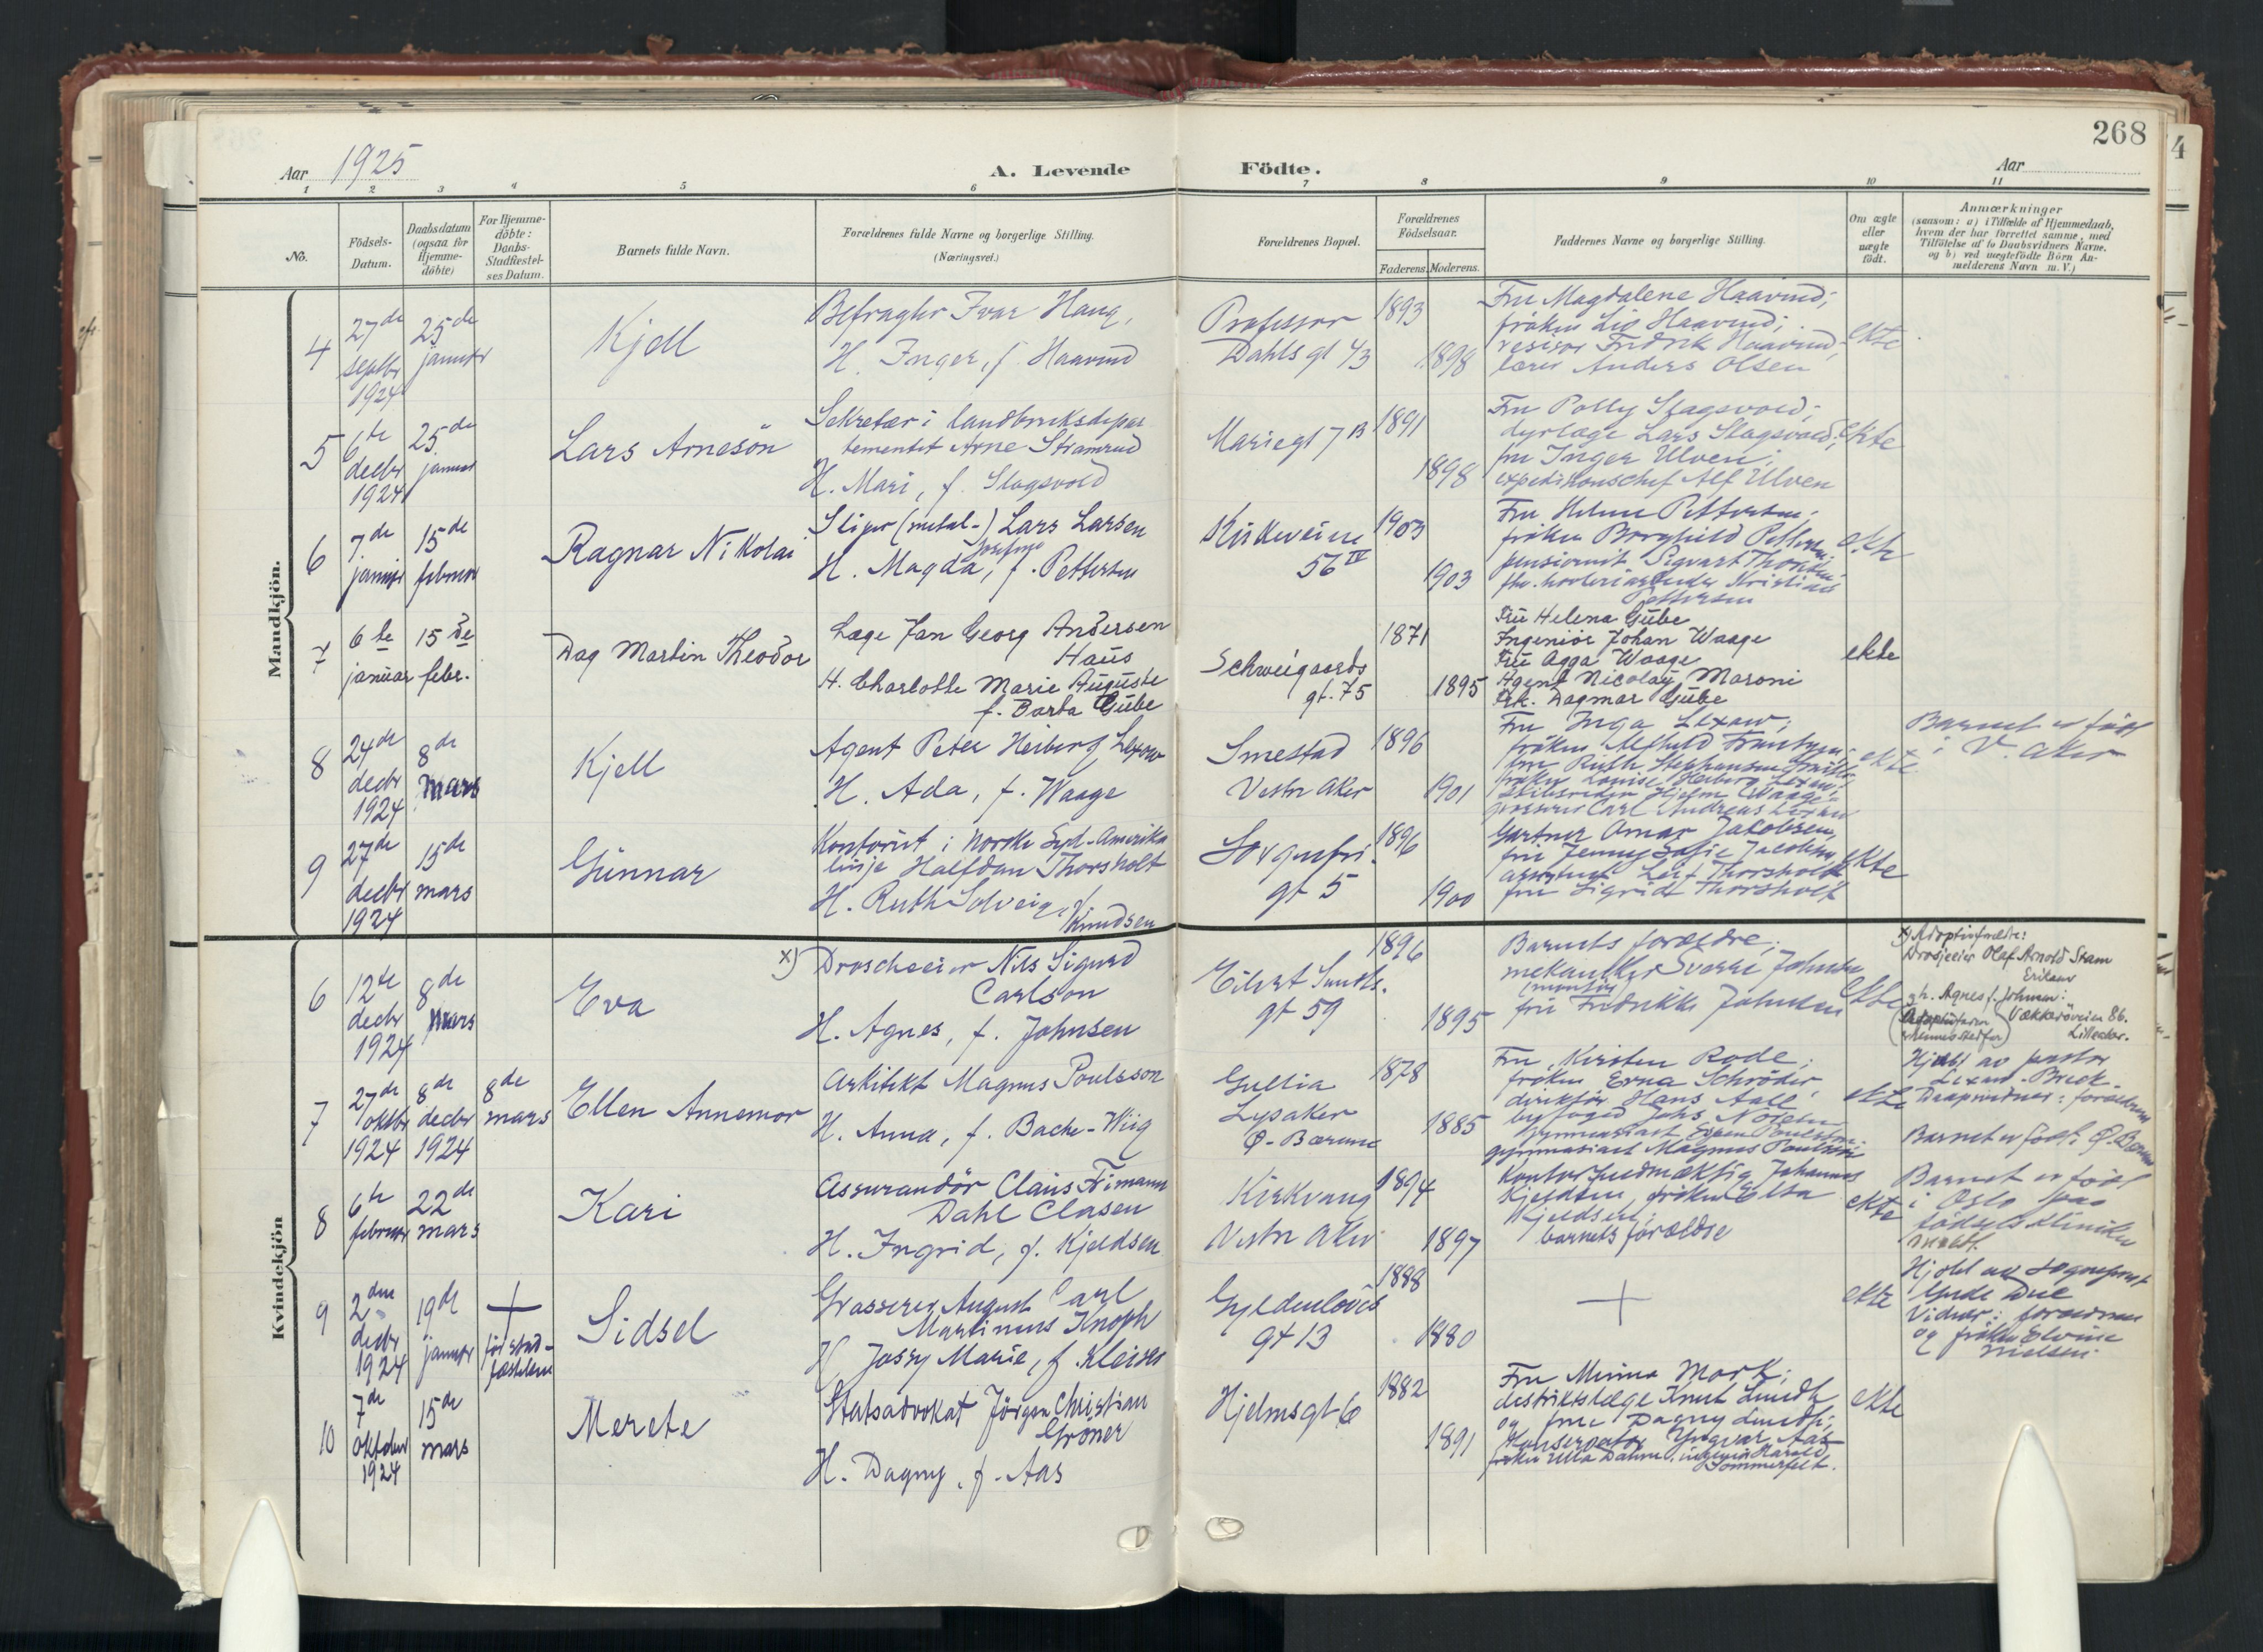 268
4
Aar 1925
A. Levende Födte.
Aar
1 2 3 4 5 6 7 8 9 10 11
No.
Födsels-
Datum.
Daabsdatum
(ogsaa for
Hjemme-
döbte)
For Hjemme-
döbte:
Daabs-
Stadfæstel-
ses Datum.
Barnets fulde Navn.
Forældrenes fulde Navne og borgerlige Stilling.
(Næringsvei.)
Forældrenes Bopæl.
Forældrenes
Födselsaar.
Faderens. Moderens.
Faddernes Navne og borgerlige Stilling.
Om ægte
eller
uægte
födt.
Anmærkninger
(saasom: a) i Tilfælde af Hjemmedaab,
hvem der har forrettet samme, med
Tilföielse af to Daabsvidners Navne.
og b) ved uægtefödte Börn An-
melderens Navn m. V.)
Mandkjön.
4
27de
septbr
1924
25de
januar
Kjell
Befragter Ivar Haug,
H. Inger, f. Haavind
Professor
Dahls gt 43
1893
1898
Fru Magdalene Haavind;
fröken Liv Haavind;
revisor Fredrik Haavind;
lærer Anders Olsen
ekte
5
6te
decbr
1924
25de
januar
Lars Arnesön
Sekretær i landbruksdepar
tementet Arne Stramrud
H. Mari, f. Slagsvold
Mariegt 7 B
1891
1898
Fru Polly Slagsvold;
dyrlæge Lars Slagsvold;
fru Inger Ulven;
expeditionschef Alf Ulven
ekte
6
7de
januar
15de
februar
Ragnar Nikolai
Sliper (metal-) Lars Larsen
H. Magda Josefine, f. Pettersen
Kirkeveien
56 IV
1903
1903
Fru Helene Pettersen;
fröken Borghild Pettersen;
pensionist Sigvart
Kristian
Pettersen
ekte
7
6te
januar
15de
febr.
Dag Martin Theodor
Læge Jan Georg Andersen
Haus
H. Charlotte Marie Auguste
f. Barta Gube
Schweigaards
gt. 75
1871
1895
Fru Helena Gube
Ingeniör Johan Waage
Fru Agga Waage
Agent Nicolay Maroni
Frk. Dagmar Gube
ekte
8
24de
decbr
1924
8de
mars
Kjell
Agent Peter Heiberg Lexow
H. Ada, f. Waage
Smestad
Vestre Aker
1896
1901
Fru Inga Lexow;
fröken Alfhild
fru Ruth Stephansen
fröken Louise Heiberg Lexow;
skibsreder Hjelm Waage;
grosserer Carl Andreas Lexow
ekte
Barnet er födt
i V. Aker
9
27de
decbr
1924
15de
mars
Gunnar
Kontorist i Norske Syd-Amerika
linje Halfdan Thorsholt
H. Ruth Solveig, f.
Knudsen
Sorgenfri-
gt 5
1896
1900
Gartner Omar Jakobsen,
fru Jenny Sofie Jacobsen,
Leif Thorsholt
fru Sigrid Thorsholt
ekte
Kvindekjön
6
12te
decbr
1924
8de
mars
Eva
x) Droscheeier Nils Sigurd
Carlson
H. Agnes, f. Johnsen
Eilert Sundts.
gt 59
1896
1895
Barnets forældre;
mekaniker Sverre Johnsen
fru Fredrikke Johnsen
ekte
x) Adoptivforeldre:
Drosjeeier Olaf Arnold Stam
Eriksen
g h. Agnes f. Johnsen:
Vækkeröveien 86.
Lilleaker.
7
27de
oktbr
1924
8de
decbr
1924
8de
mars
Ellen Annemor
Arkitekt Magnus Poulsson
H. Anna, f. Bache-Wiig
Gullia
Lysaker
Ø. Bærum
1878
1885
Fru Kirsten Rode;
fröken Erna Schröder
direktör Hans Aall;
byfoged Johs.
gymnasiast Espen Poulsson;
gymnasiast Magnus Poulsson
ekte
Hjdbt av pastor
Lexow-Breck.
Daapvidner: forældrene
Barnet er födt i Ø. Bærum
8
6te
februar
22de
mars
Kari
Assurandör Claus Frimann
Dahl Clasen
H. Ingrid, f. Kjeldsen
Kirkvang
Vestre Aker
1894
1897
Kontorfuldmægtig Johannes
Kjeldsen, fröken Elsa
Kjeldsen;
barnets forældre
ekte
Barnet er födt
i Oslo paa
födselsklinikken
9
2den
decbr
1924
19de
januar
+
för stad-
fæstelsen
Sidsel
Grosserer August Carl
Martinius Knoph
H. Jossy Marie, f. Kleiser
Gyldenlöves
gt 13
1888
1880
+
ekte
Hjdbt av sogneprest
Gude Due
Vidner: forældrene
og fröken Elvine
Nielsen.
10
7de
oktober
1924
15de
mars
Merete
Statsadvokat Jörgen Christian
Gröner
H. Dagny, f. Aas
Hjelmsgt 6
1882
1891
Fru Minna Mork;
distriktslæge Knut Lundh
og frue Dagny Lundh;
Konservator Yngvar Aas
fröken Ulla Dahm, ingeniör Harald
Sommerfelt.
ekte